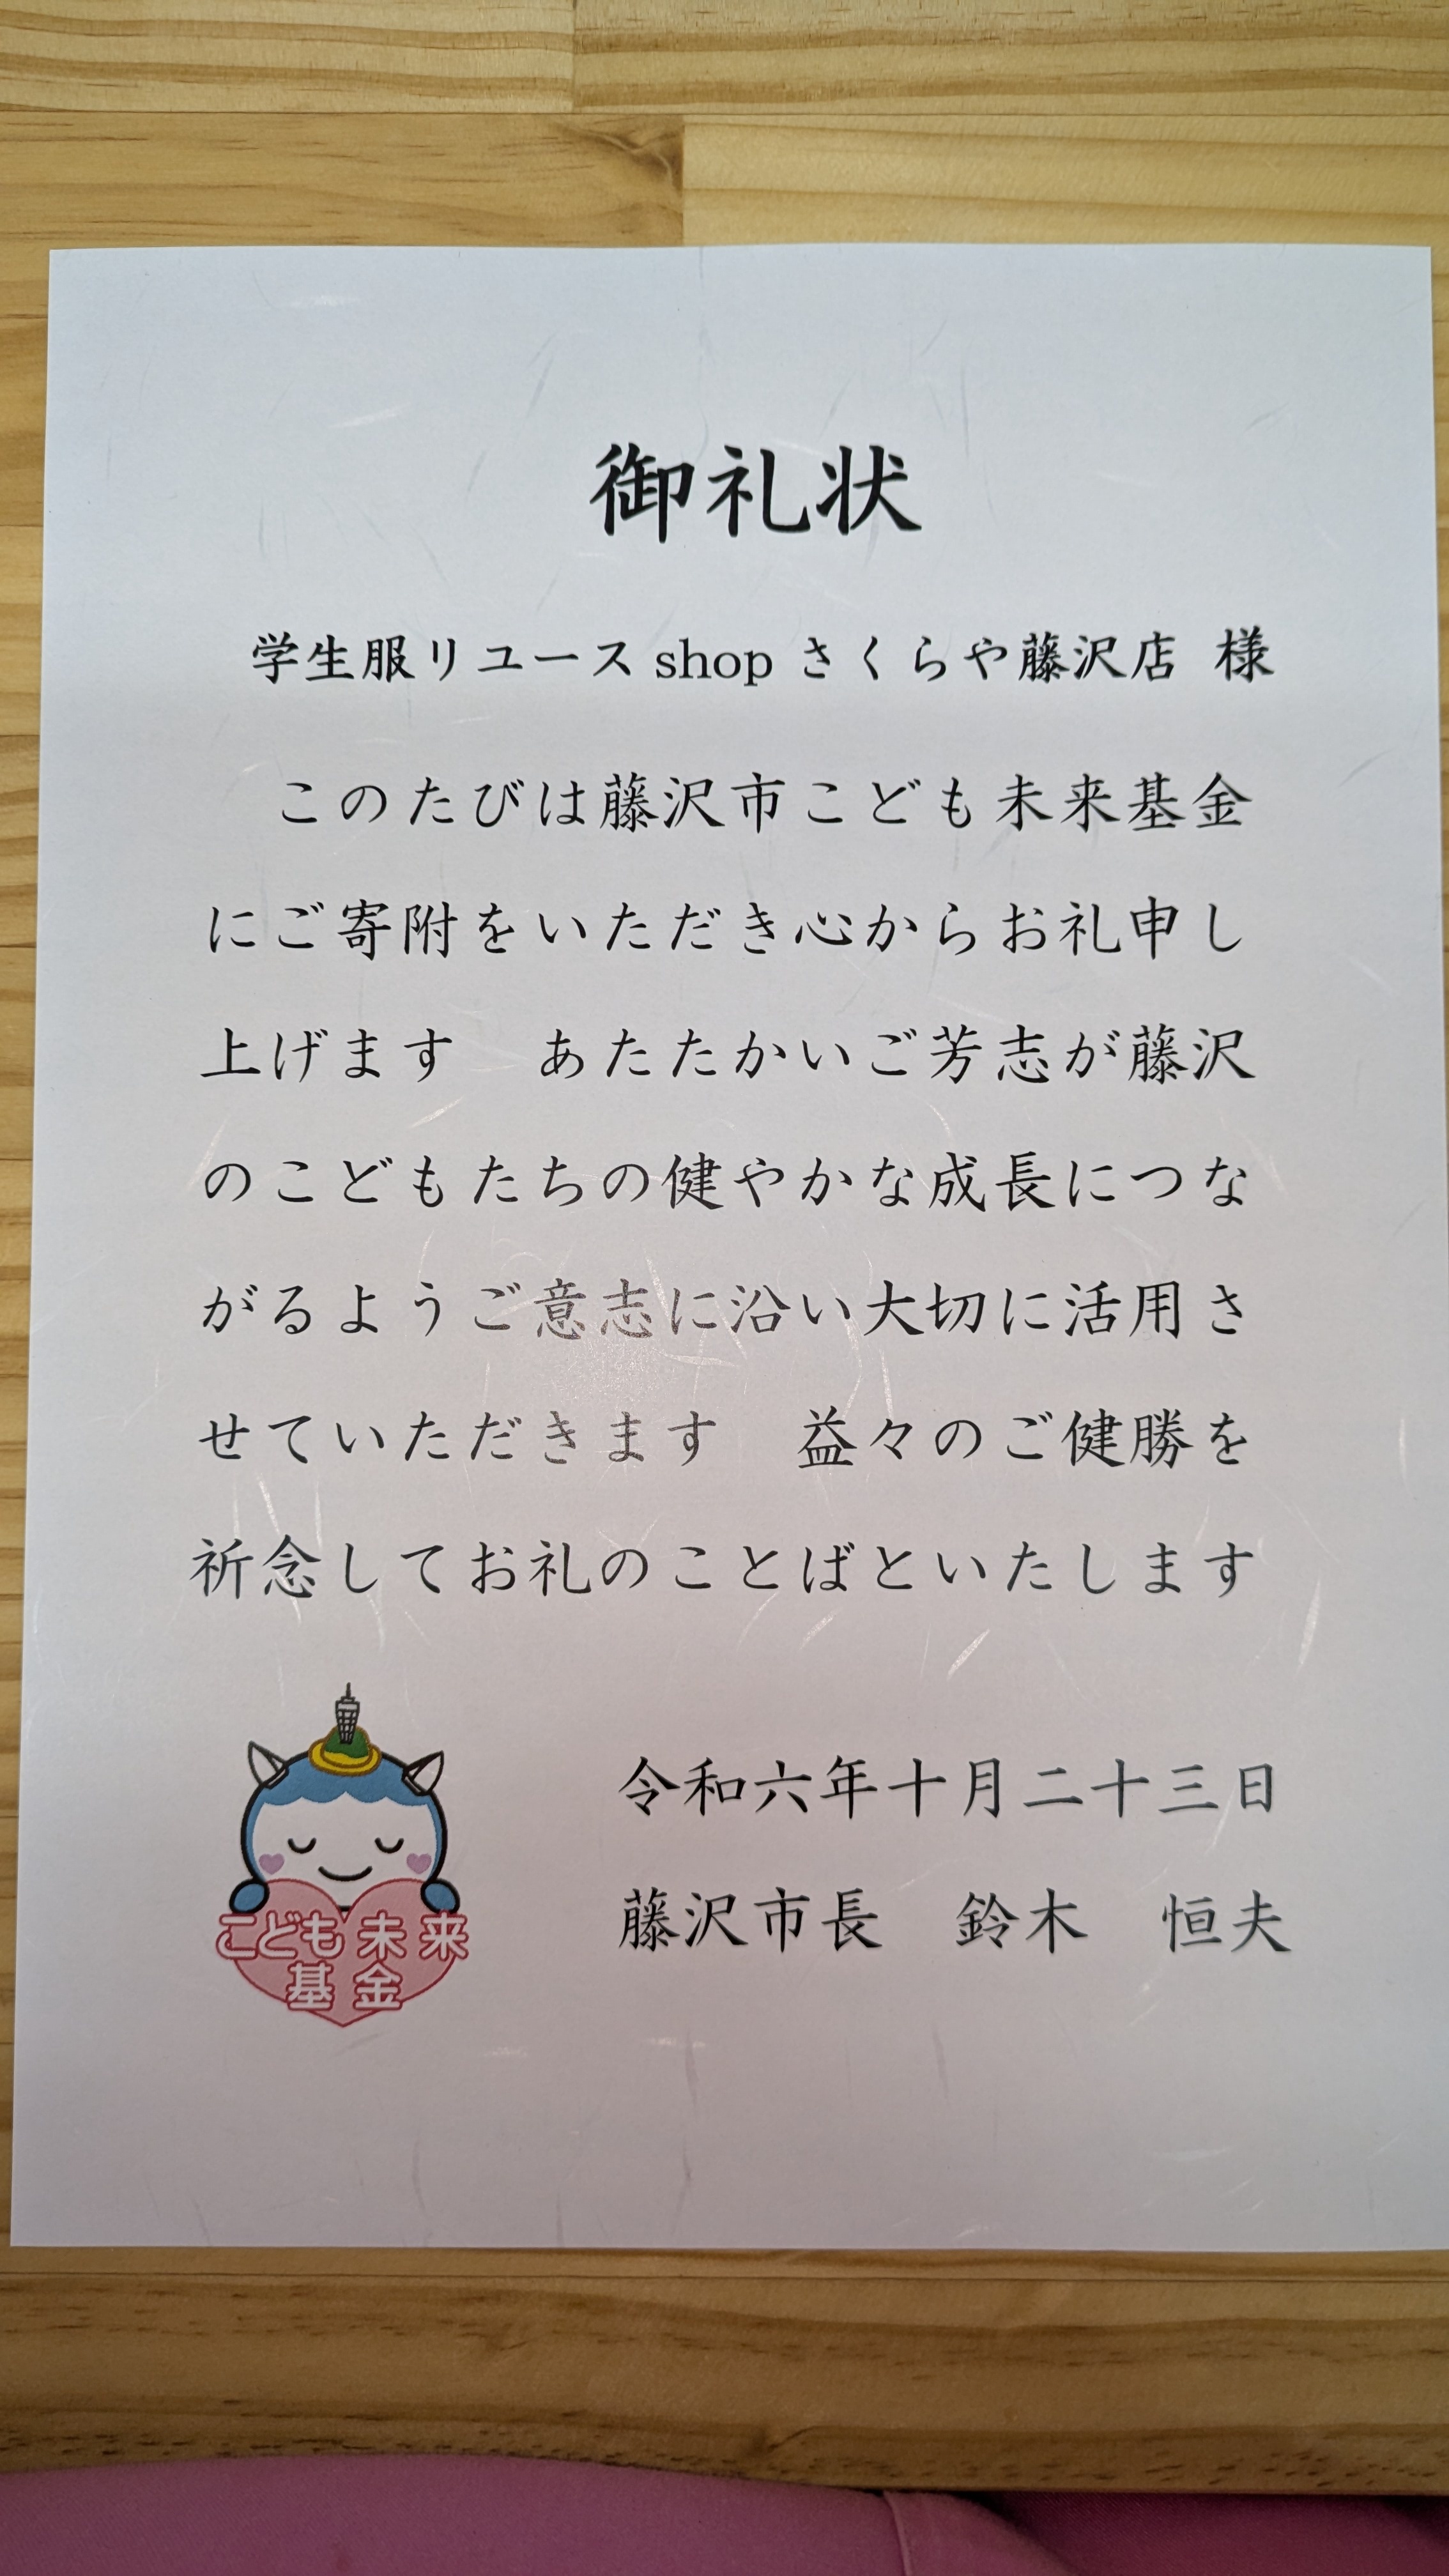 御礼状
学生服リユース shop さくらや藤沢店 様
このたびは藤沢市こども未来基金
にご寄附をいただき心からお礼申し
上げます　あたたかいご芳志が藤沢
のこどもたちの健やかな成長につな
がるようご意志に沿い大切に活用さ
せていただきます　益々のご健勝を
祈念してお礼のことばといたします
令和六年十月二十三日
藤沢市長　鈴木　恒夫
こども未来
基金